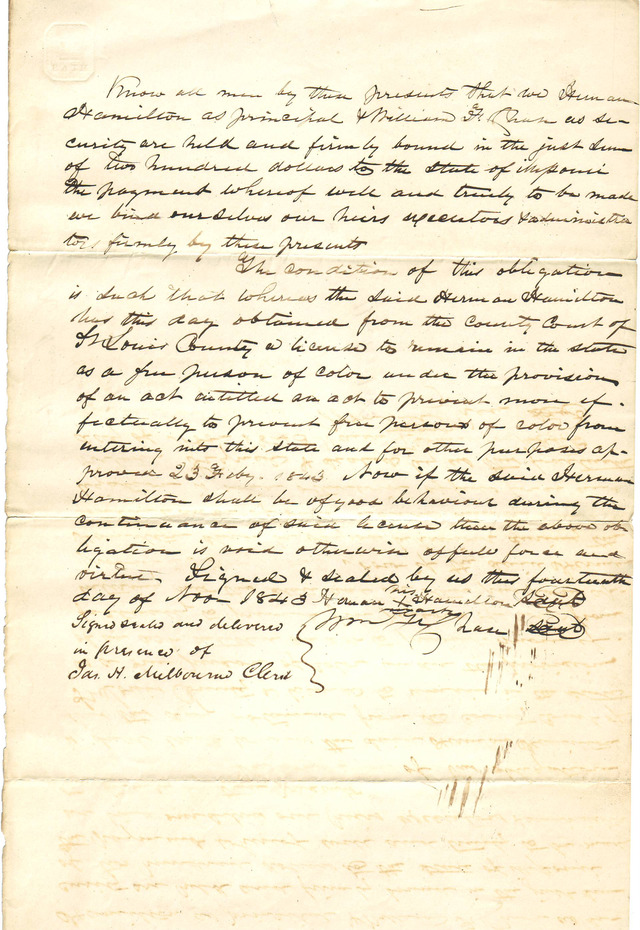 Know all men by these presents that we Herman
Hamilton as principal & William F. Chase as se-
curity are held and firmly bound in the just sum
of two hundred dollars to the state of Missouri
the payment whereof well and truly to be made
we bind ourselves our heirs executors & administra
tors firmly by these presents
The condition of this obligation
is such that whereas the said Herman Hamilton
has this day obtained from the County Court of
St Louis County a license to remain in the state
as a free person of color under the provision
of an act entitled an act to prevent more ef-
fectually to prevent free persons of color from
entering into this state and for other purposes ap-
proved 23 Feby. 1843 Now if the said Herman
Hamilton shall be of good behaviour during the
continuance of said license then the above ob
ligation is void otherwise of full force and
virtue. Signed & sealed by us this fourteenth
day of Nov 1843 Herman his X mark Hamilton seal
Signed sealed and delivered Wm Chase seal
in presence of
Jas. H. Milbourne Clerk